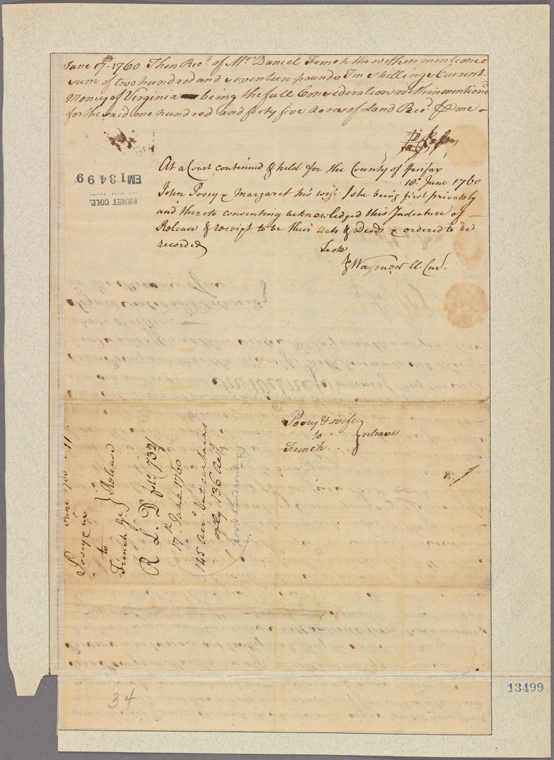 June 17th 1760 Then Recd of Mr Daniel French the within mentioned
sum of two hundred and seventeen pounds Ten shillings Current
Money of Virginia being the full Consideration within mention'd
for the said one hundred and forty five Acres of Land Recd pr me
At a Court continued & held for the County of Fairfax
18th June 1760
John Posey & Margaret his wife (she being first privately
and thereto consenting acknowledged this Indenture of
Release & receipt to be their acts & Deeds & ordered to be
recorded
Teste
P Wagener Cl Cur.
EM13499
EMMET COLL.
Posey & wife
to
French
release
Posey & ux
to
French Jr
Release
R L D
17th June 1760
145 acres
only 136 acrs
34
13499